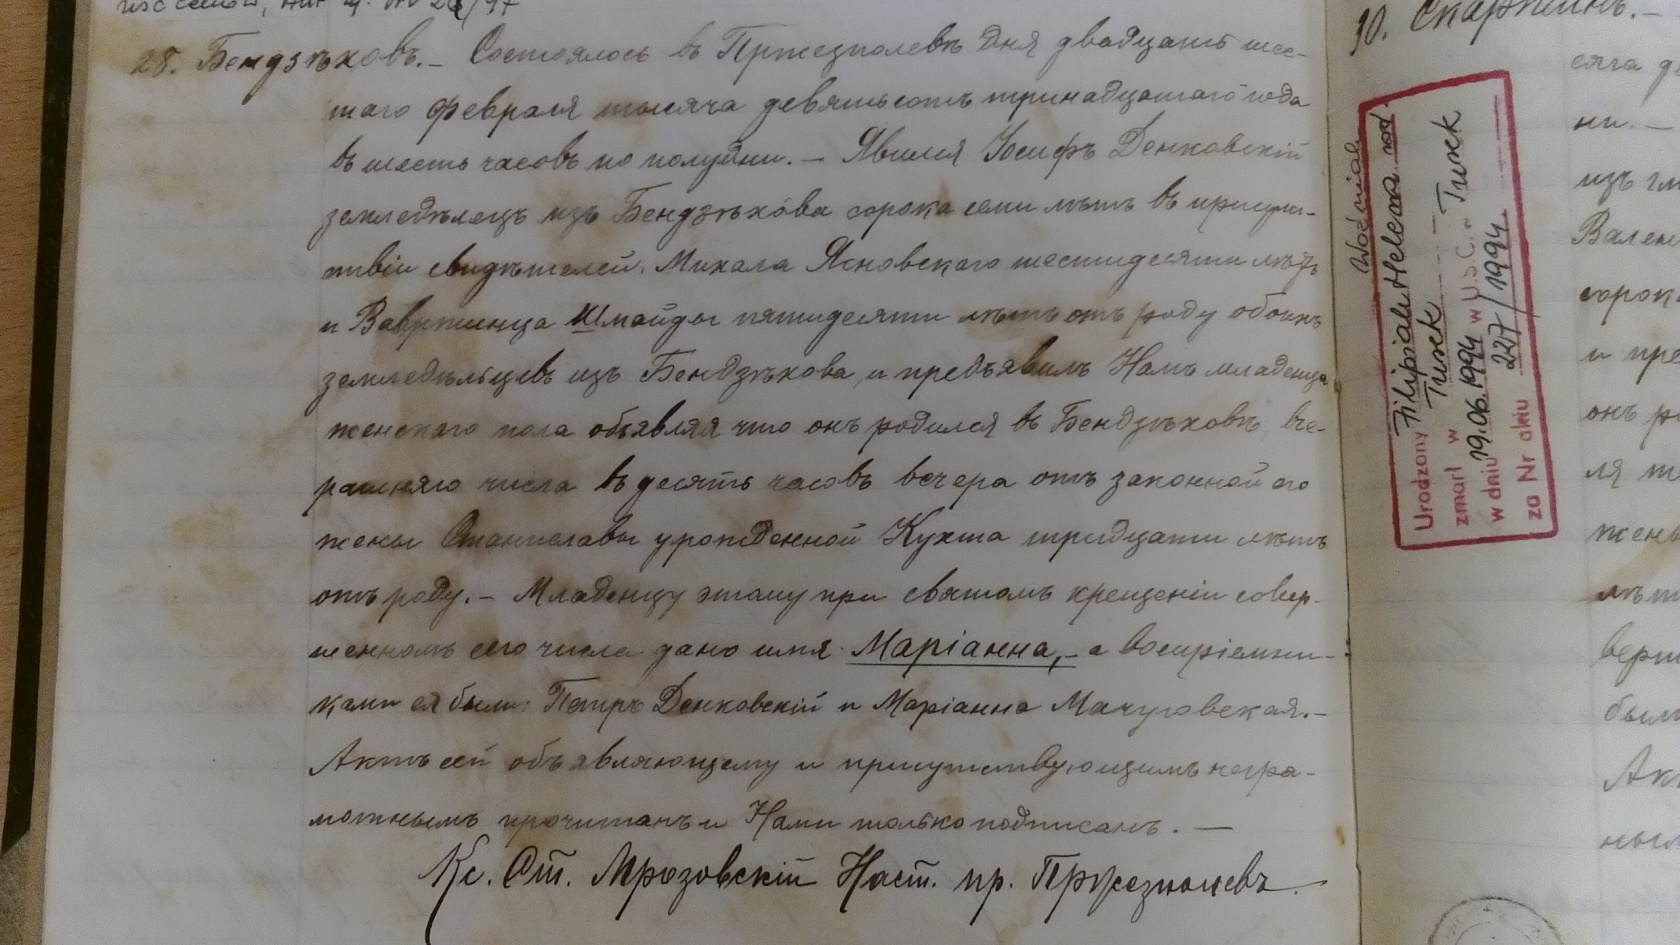 28. Бендзѣховъ. – Состоялось въ Пржезполевѣ дня двадцать шес-
таго февраля тысяча девятьсотъ тринадцатаго года
въ шесть часовъ по полудни. – Явился Іосифъ Денковскій
земледѣлецъ изъ Бендзѣхова сорока семи лѣтъ въ присут-
ствіи свидѣтелей, Михала Ясновскаго шестидесяти лѣтъ
и Вавржинца Шмайды пятидесяти лѣтъ отъ роду обоихъ
земледѣльцевъ изъ Бендзѣхова, и предъявилъ Намъ младенца
женскаго пола объявляя что онъ родился въ Бендзѣховѣ, вче-
рашняго числа въ десять часовъ вечера отъ законной его
жены Станиславы урожденной Кухта тридцати лѣтъ
отъ роду. – Младенцу этому при святомъ крещеніи совер-
шенномъ сего числа дано имя Маріанна, – а воспріемни-
ками ея были: Петръ Денковскій и Маріанна Мачуговская. –
Актъ сей объявляющему и присутствующимъ негра-
мотнымъ прочитанъ и Нами только подписанъ. –
Кс. Ст. Мрозовскій Наст. пр. Пржезполевъ.
30. Скаржинъ. –
Woźniak
Urodzony Filipiak Helena
zmarł w Turek
w dniu 19.06.1994 w U.S.C. Turek
za Nr aktu 227/1994
ни. –
изъ
сорок
и пре
онъ
жены
верш
был